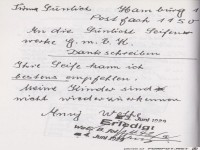 Firma Dünlicht Hamburg 1
Postfach 1150
An die Dünlicht Seifen=
werke G.m.b.H.
Dankschreiben
Ihre Seife kann ich
bestens empfehlen.
Meine Kinder sind
nicht wiederzuerkennen
Erledigt